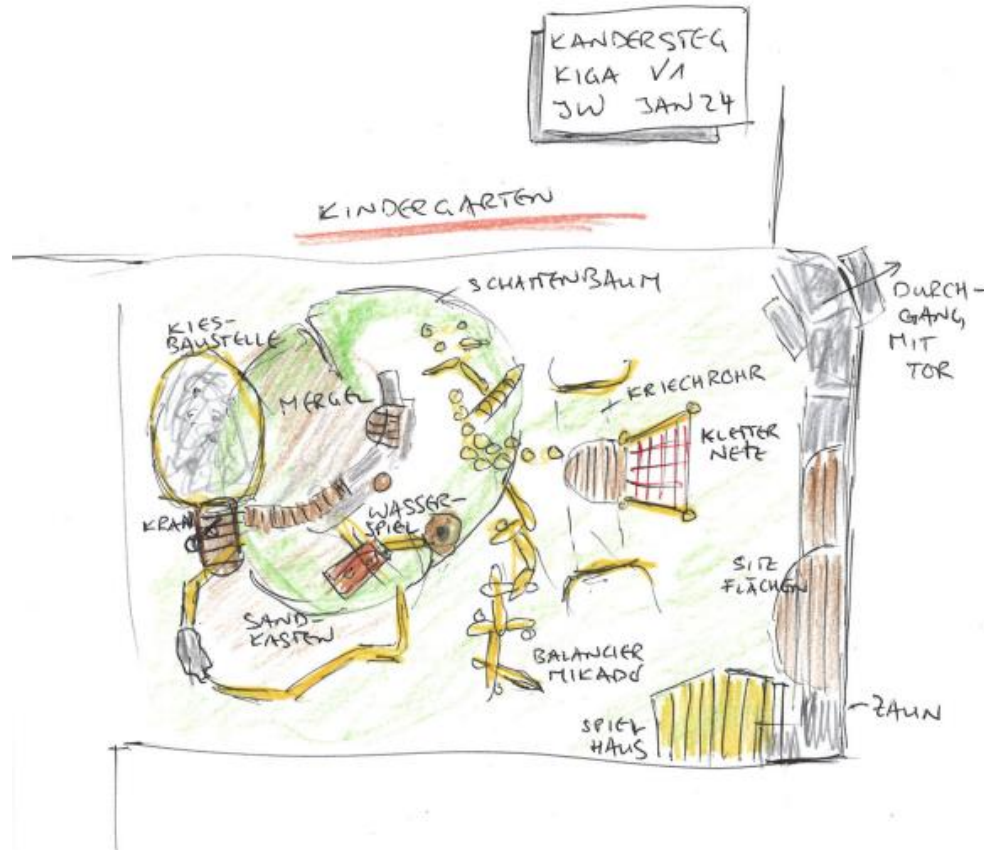 KANDERSTEG
KIGA V1
JW JAN 24
KINDERGARTEN
SCHATTENBAUM
DURCH-
GANG
MIT
TOR
KIES-
BAUSTELLE
MERGEL
KRIECHROHR
KLETTER
NETZ
KRAN
WASSER-
SPIEL
SITZ
FLÄCHEN
SAND-
KASTEN
BALANCIER
MIKADO
SPIEL
HAUS
ZAUN